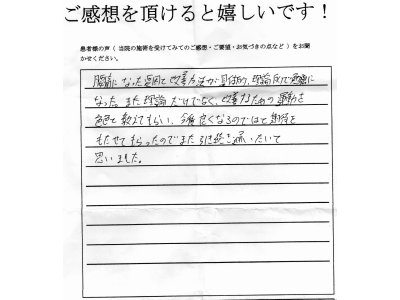 ご感想を頂けると嬉しいです！
患者様の声（ 当院の施術を受けてみてのご感想・ご要望・お気づきの点など ）をお聞
かせください。
腰痛になった原因と改善方法が具体的、理論的で
なった。また理論だけでなく、改善するための運動を
色々教えてもらい、今後良くなるのではと期待を
もたせてもらったのでまた引き続き通いたいと
思いました。